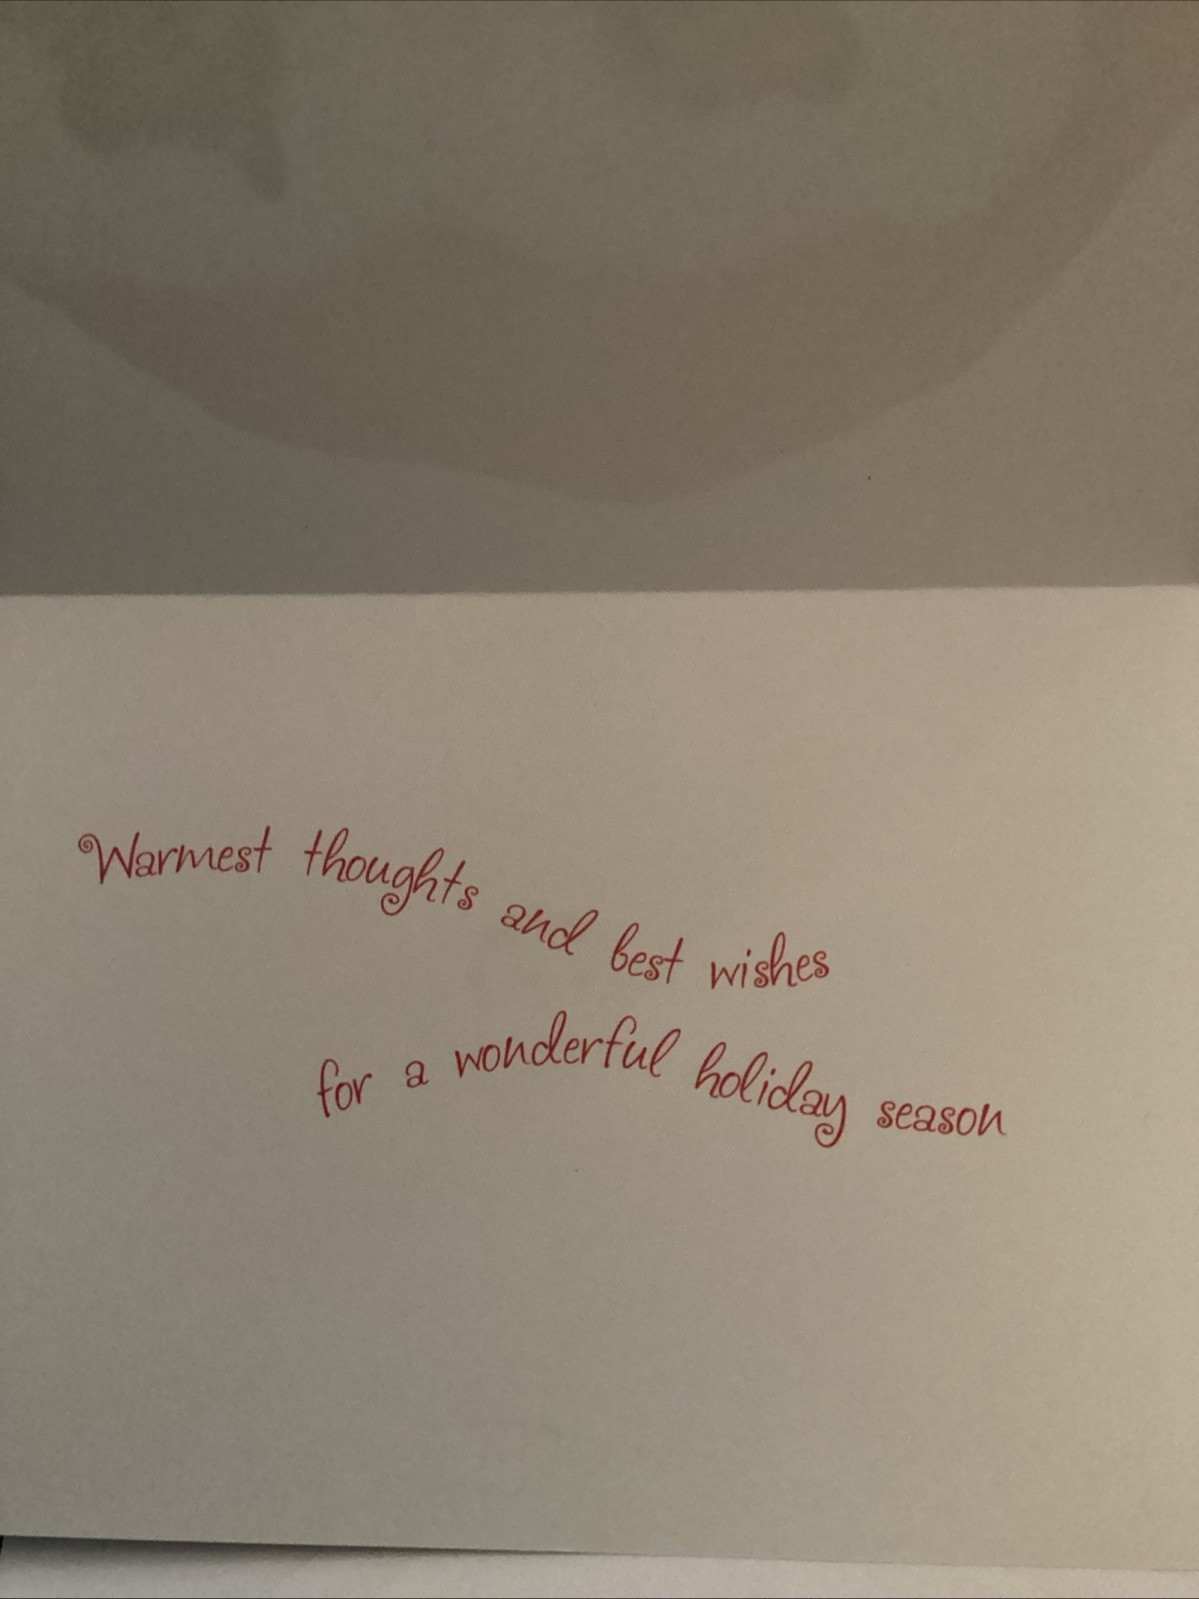 Warmest thoughts and best wishes
for a wonderful holiday season